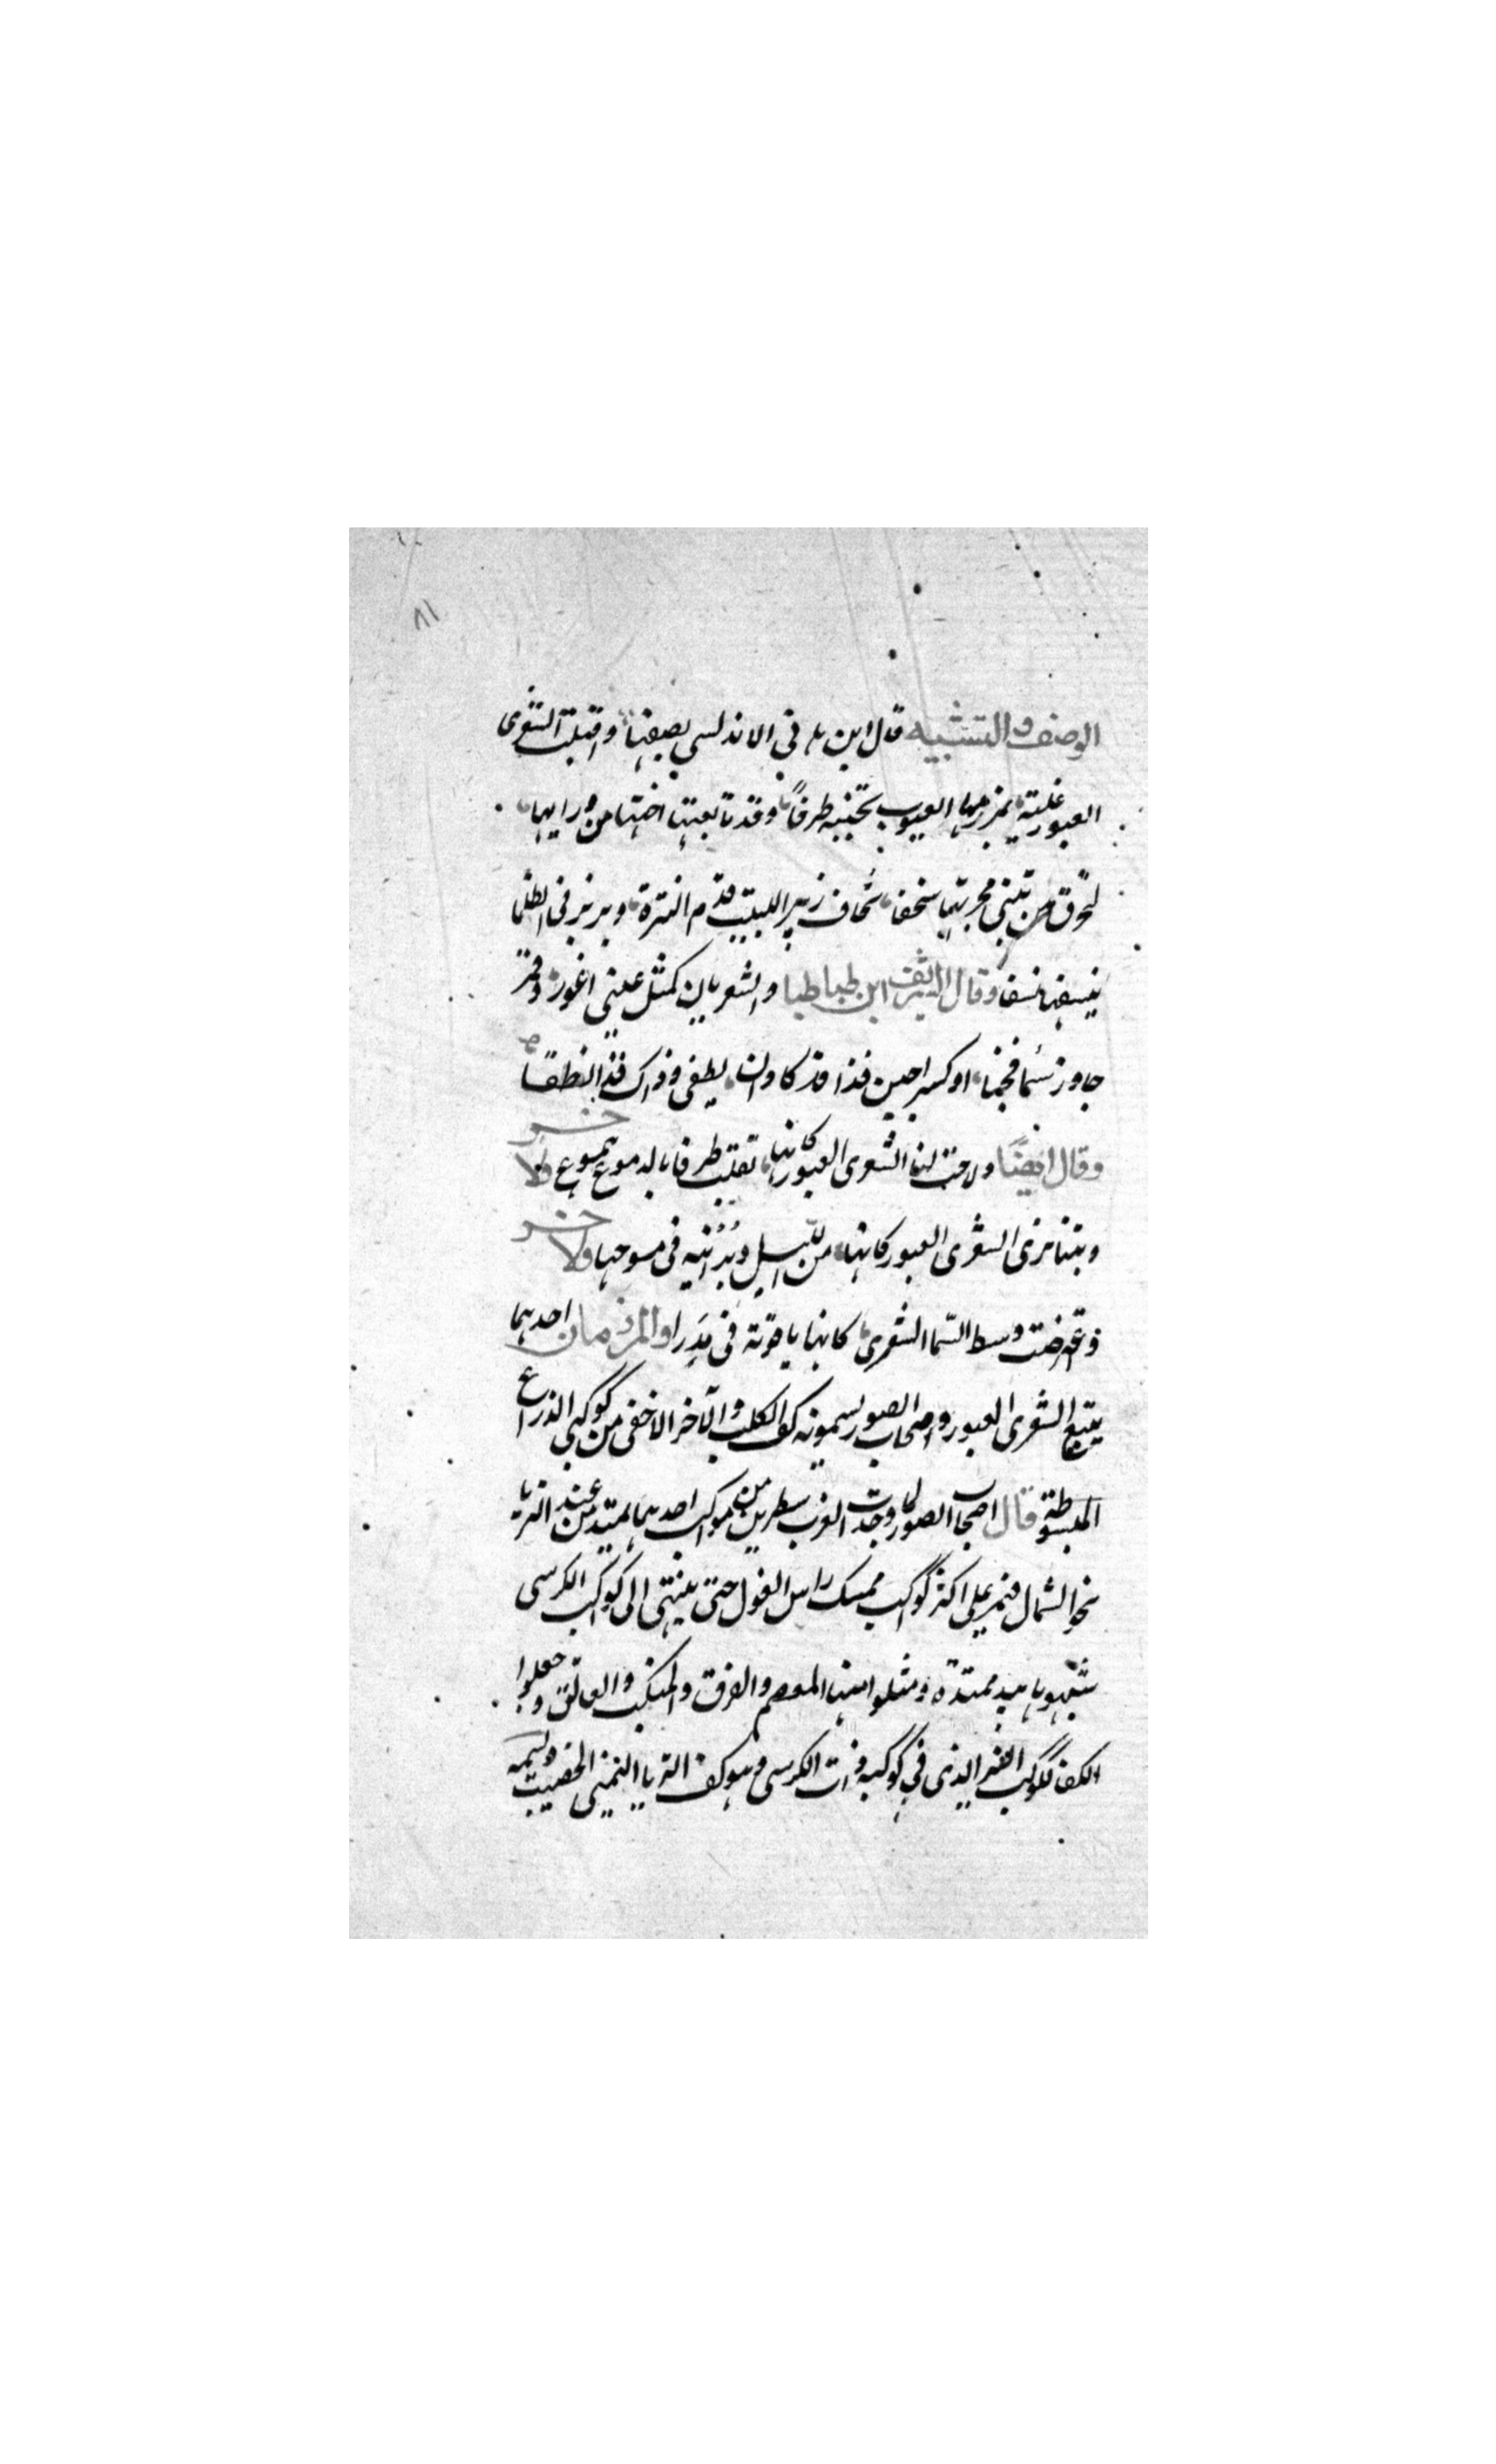 ٨١
الوصف والتشبيه قال ابن هاني الاندلسي يصفها واقبلت الشعرى
العبور ملبية بمرزمها اليعبوب تجنبه طرفا وقد تابعتها اختها من ورايها
لتخرق من ثنيي مجرتها سجفا تخاف زئير الليث قدم النثرة وبربر في الظلما
ينسفها نسفا وقال الشريف ابن طباطبا والشعريان كمثل عيني اغور
جاوز نسما فجفنا او كسراجين فذا قد كاد ان يطفى وذاك قد انطفا
وقال ايضا ولاحت لنا الشعرى العبور كانها تقلب طرفا بالدموع هموع ولاخر
وبتنا نرى الشعرى العبور كانها من الليل في مسوحها ولاخر
وتعرضت وسط السما الشعرى كانها ياقوتة في مدرا والمرزمان احدهما
يتبع الشعرى العبور واصحاب الصور يسمونه كف الكلب والآخر الاخفى من كوكبي الذراع
المبسوطة قال اصحاب الصور لما وجدت العرب سطرين من كواكب احدهما يمتد من عند الثريا
نحو الشمال فيمر على اكثر كواكب ممسك راس الغول حتى ينتهي الى كواكب الكرسي
شبهوها بيد ممتدة ومثلوا منها المعصم والمرفق والمنكب والعاتق وجعلوا
الكف لكوكب النير الذي في كوكبه ذات الكرسي وهو كف الثريا اليمنى الخضيب ويسمى